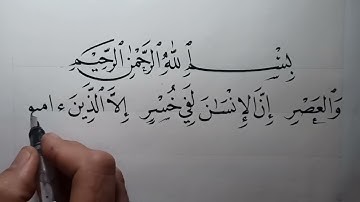 بِسْمِ ٱللهِ ٱلرَّحْمٰنِ ٱلرَّحِيمِ
وَٱلْعَصْرِ إِنَّ ٱلْإِنْسَانَ لَفِي خُسْرٍ إِلَّا ٱلَّذِينَ ءامنو